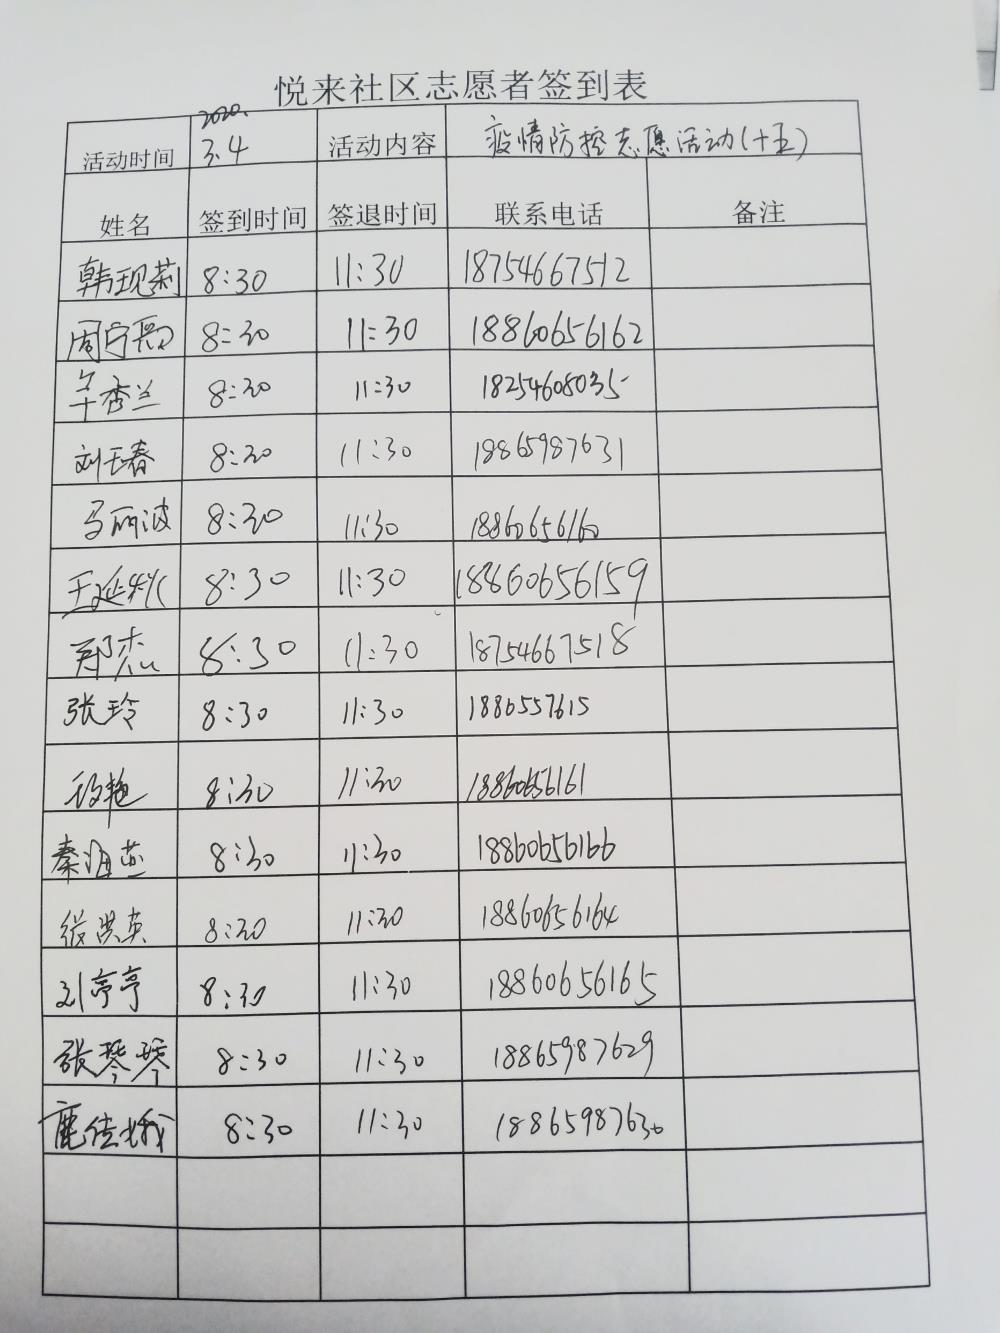 悦来社区志愿者签到表
活动时间 2020.3.4 活动内容 疫情防控志愿活动(十五)
姓名 签到时间 签退时间 联系电话 备注
韩现莉 8:30 11:30 18754667512
周宁 8:30 11:30 18860656162
辛秀兰 8:30 11:30 18254608035
刘玉春 8:30 11:30 18865987631
马丽波 8:30 11:30 18860656160
王延 8:30 11:30 18860656159
郑杰 8:30 11:30 18754667518
张玲 8:30 11:30 1886557615
段艳 8:30 11:30 18860656161
秦海燕 8:30 11:30 18860656166
张洪英 8:30 11:30 18860656164
刘亭亭 8:30 11:30 18860656165
张琴琴 8:30 11:30 18865987629
鹿佳娥 8:30 11:30 18865987630